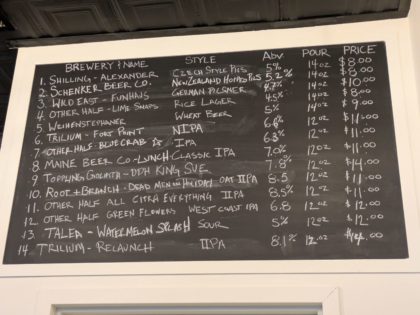 BREWERY & NAME STYLE ABV POUR PRICE
1. SHILLING - ALEXANDER CZECH STYLE PILS 5% 14oz $8.00
2. SCHENKER BEER CO. NEW ZEALAND HOPPED PILS 5.2% 14oz $8.00
3. WILD EAST - FUNHAUS GERMAN PILSNER 4.7% 14oz $10.00
4. OTHER HALF - LIME SNAPS RICE LAGER 4.5% 14oz $8.00
5. WEIHENSTEPHANER WHEAT BEER 5% 14oz $9.00
6. TRILIUM - FORT POINT NIPA 6.6% 12oz $11.00
7. OTHER HALF BLUE CRAB ☆ IPA 6.3% 12oz $11.00
8. MAINE BEER CO - LUNCH CLASSIC IPA 7.0% 12oz $11.00
9. TOPPLING GOLIATH - DDH KING SUE 7.8% 12oz $14.00
10. ROOT + BRANCH - DEAD MEN ON HOLIDAY OAT IIPA 8.5 12oz $11.00
11. OTHER HALF ALL CITRA EVERYTHING IIPA 8.5% 12oz $11.00
12. OTHER HALF GREEN FLOWERS WEST COAST IPA 6.8 12oz $12.00
13. TALEA - WATERMELON SPLASH SOUR 5% 12oz $12.00
14. TRILIUM - RELAUNCH IIPA 8.1% 12oz